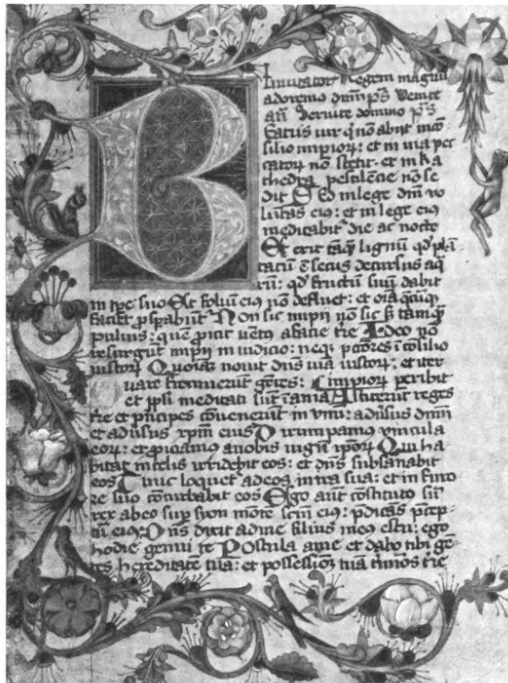 Inuitator Regem magnū
adoremo dnm̄ p̄s Venite
an̄ Seruite domino p̄s
Beatus uir q̄ nō abijt in cō
silio impiorꝝ: et in uia pec
catorꝝ nō stetit· et in ka
thedra pestilēcie nō se
dit Sed in lege dn̄i vo
lūtas eiꝰ: et in lege eiꝰ
meditabit᷑ die ac nocte
Et erit tāqꝫ lignū qd̓ plā
tatū ē secus decursus aq̄
rū: qd̓ fructū suū dabit
in tp̄e suo Et foliū eiꝰ nō defluet: et oīa q̄cūqꝫ
faciet ꝓsꝑabūt᷑ Non sic impij nō sic sꝫ tamqꝫ
puluis: quē ꝓicit uētꝰ a facie t̄re Ideo nō
resurgūt impij in iudicio: neqꝫ pctōres ī cōsilio
iustorꝝ Quoīaꝫ nouit dn̄s uiā iustorꝝ: et iter
impiorꝝ peribit
Quare fremuerūt gētes:
et ppl̓i meditati sūt īania Astiterūt reges
t̄re et pn̄cipes cōuenerūt in vnū: aduēsus dnm̄
et aduēsus xpm̄ eius Dirumpamꝰ vincula
eorꝝ: et ꝓiciamꝰ a nobis iugū ip̄orꝝ Qui ha
bitat in celis irridebit eos: et dn̄s subsānabit
eos Tunc loquet᷑ ad eos in ira sua: et in furo
re suo cōturbabit eos Ego aūt cōstitutꝰ sū
rex ab eo suꝑ syon mōtē scm̄ eiꝰ: p̄dicās p̄cep
tū eiꝰ Dn̄s dixit ad me filius meꝰ es tu: ego
hodie genui te Postula a me et dabo tibi gē
tes hereditatē tuā: et possessioēꝫ tuā t̄mīos t̄re